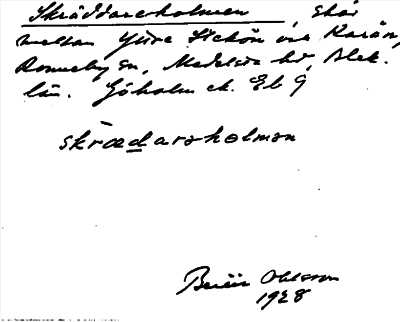 Skräddareholmen, skär
mellan Yttre Stekön och Karön,
Ronneby sn, Medelsta hd, Blek.
län. Göholm ek. Eb 9
skrædarəholmən
Berit Ohlsson
1928